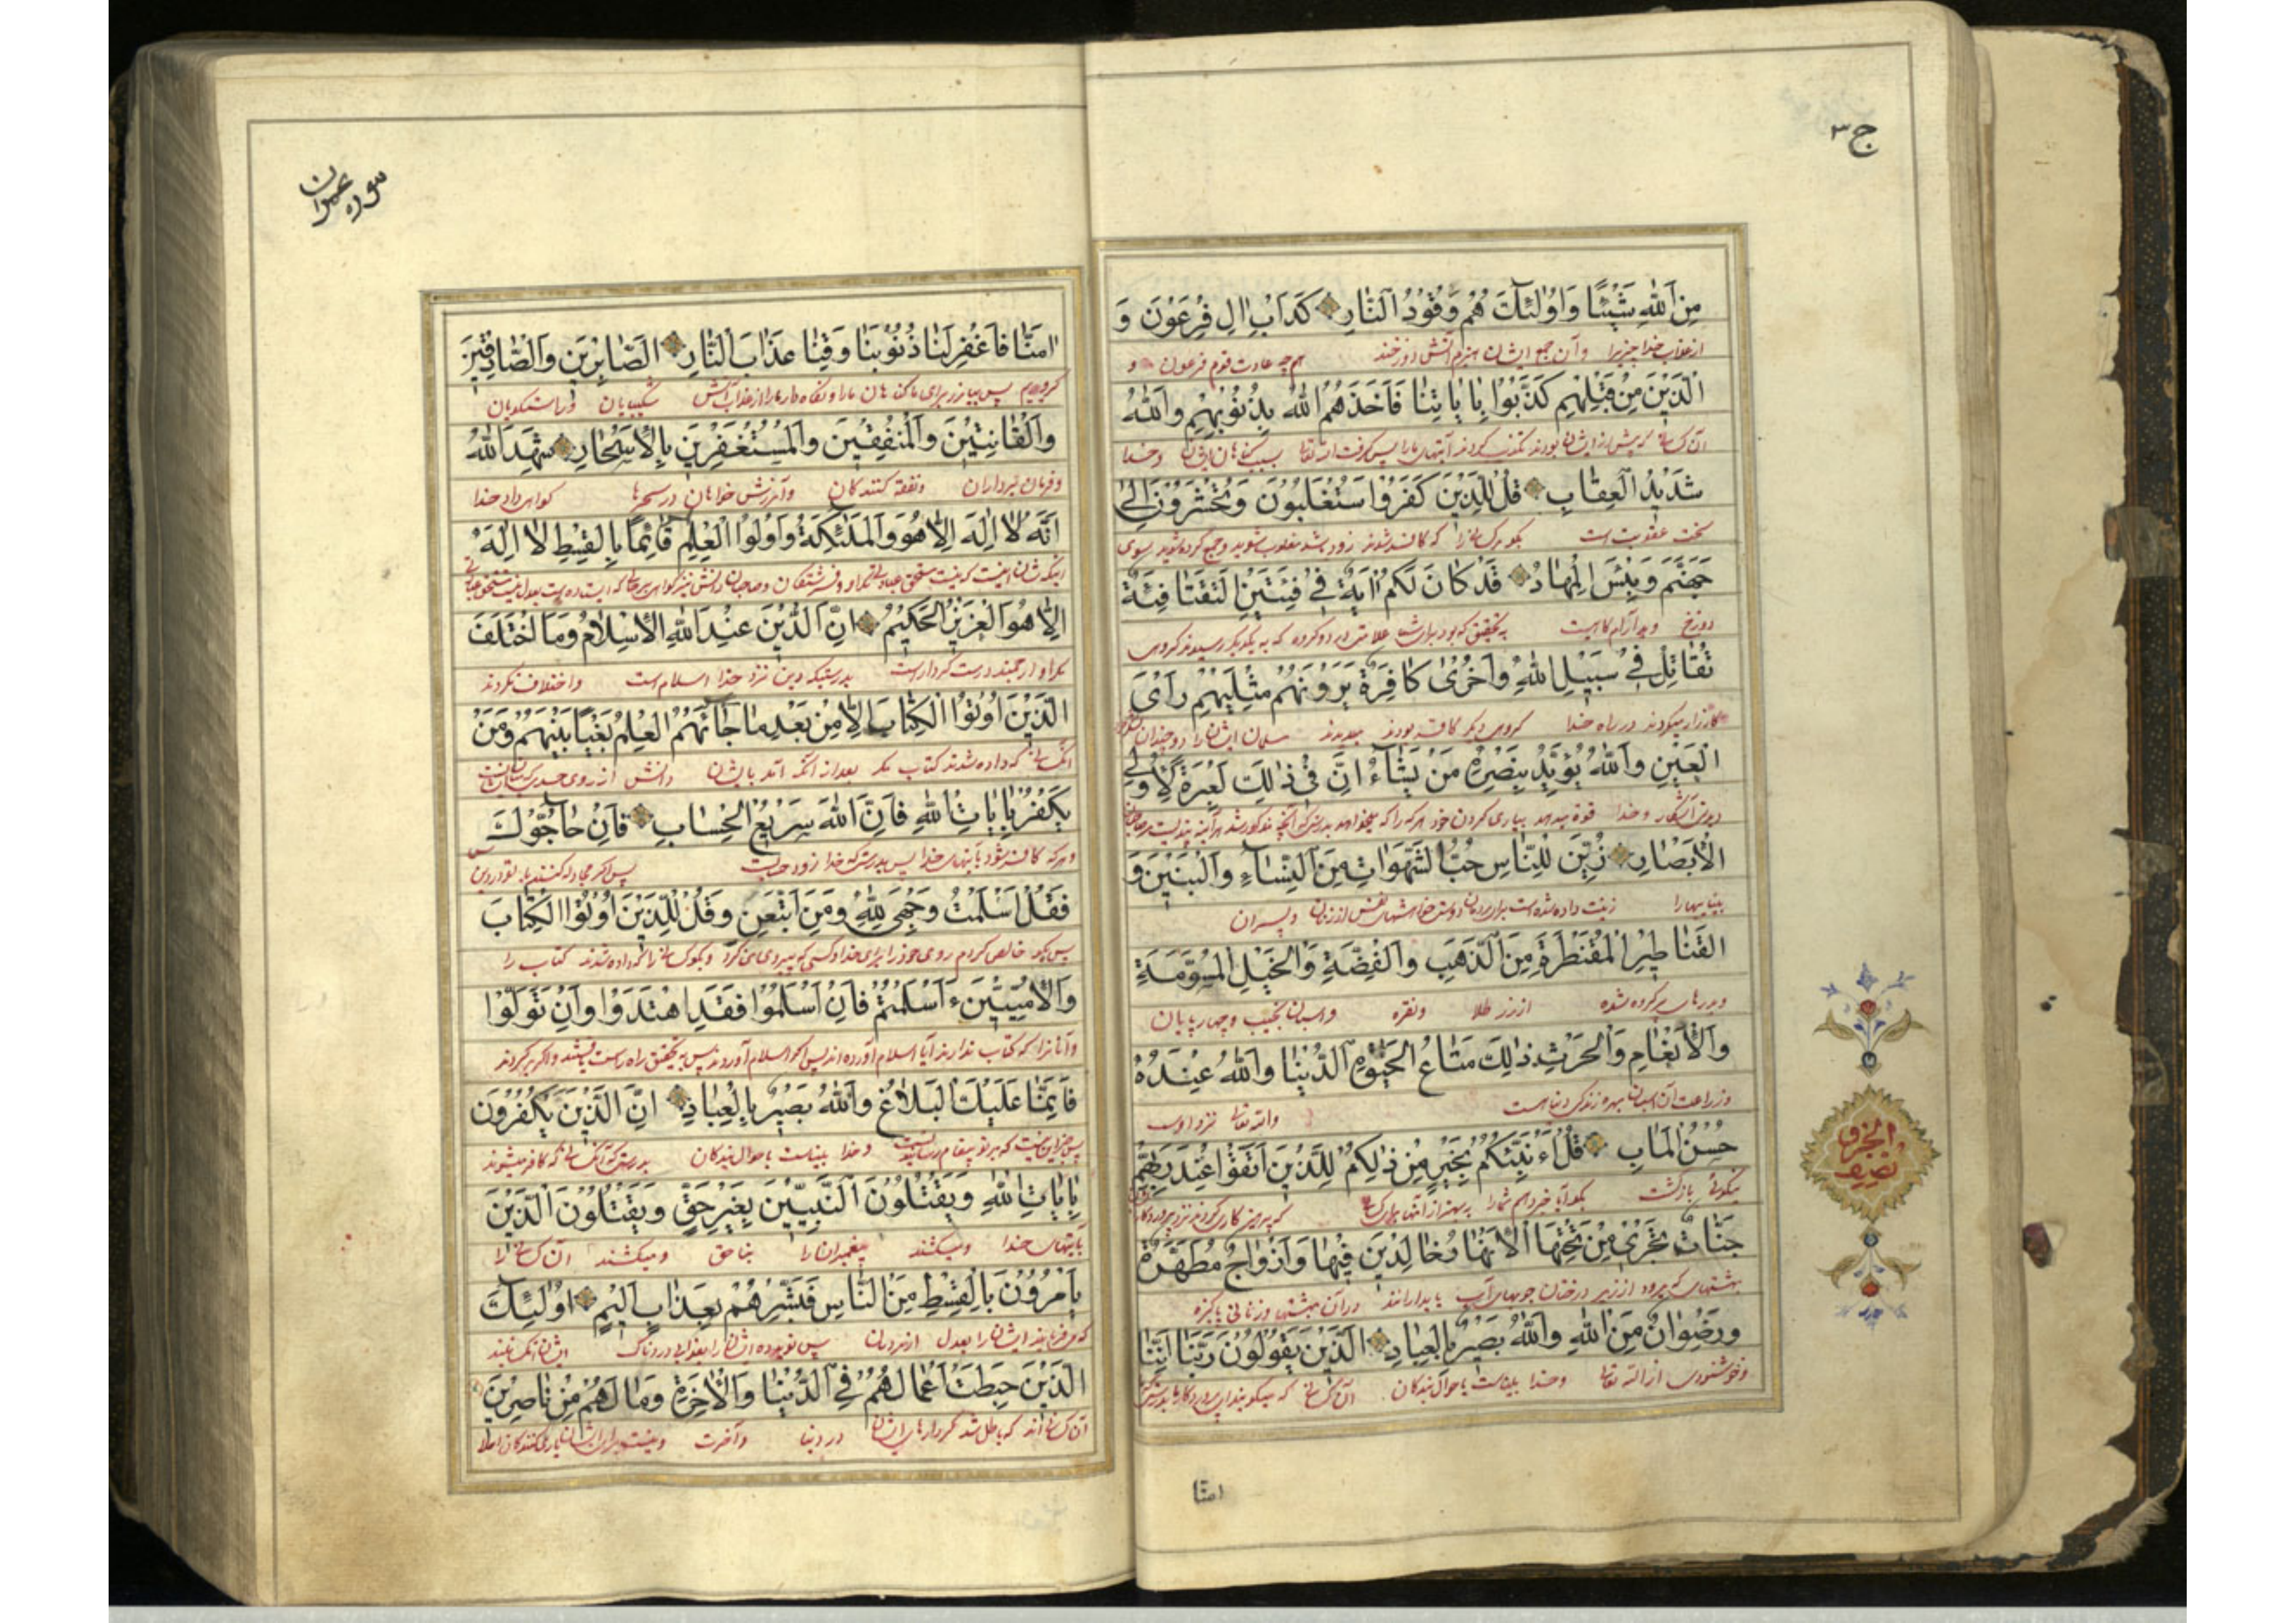 ج۳
مِنَ اللّٰهِ شَيْئًا وَاُولٰئِكَ هُمْ وَقُوْدُ النَّارِ كَدَاْبِ اٰلِ فِرْعَوْنَ وَ
از عذاب خدا چیزیرا وآن جمع ایشان هیزم آتش دوزخند همچه عادت قوم فرعون و
الَّذِيْنَ مِنْ قَبْلِهِمْ كَذَّبُوْا بِاٰيَاتِنَا فَاَخَذَهُمُ اللّٰهُ بِذُنُوْبِهِمْ وَاللّٰهُ
آن کسانی که پیش از ایشان بودند تکذیب کردند آیتهای ما را پس گرفت الله تعالی بسبب گناهان ایشان و خدا
شَدِيْدُ الْعِقَابِ قُلْ لِلَّذِيْنَ كَفَرُوْا سَتُغْلَبُوْنَ وَتُحْشَرُوْنَ اِلٰى
سخت عقوبت است بگو مر کسانی را که کافر شدند زود باشد مغلوب شوید و جمع کرده شوید بسوی
جَهَنَّمَ وَبِئْسَ الْمِهَادُ قَدْ كَانَ لَكُمْ اٰيَةٌ فِيْ فِئَتَيْنِ الْتَقَتَا فِئَةٌ
دوزخ و بد آرام گاهیست به تحقیق که بود برای شما علامتی در دو گروه که به یکدیگر رسیدند گروهی
تُقَاتِلُ فِيْ سَبِيْلِ اللّٰهِ وَاُخْرٰى كَافِرَةٌ يَرَوْنَهُمْ مِثْلَيْهِمْ رَاْيَ
کارزار میکردند در راه خدا گروهی دیگر کافر بودند میدیدند مسلمانان ایشانرا دو چندان
الْعَيْنِ وَاللّٰهُ يُؤَيِّدُ بِنَصْرِهٖ مَنْ يَشَاۤءُ اِنَّ فِيْ ذٰلِكَ لَعِبْرَةً لِاُولِي
دیدن آشکار و خدا قوة میدهد بیاری کردن خود هر که را که میخواهد بدرستی که آنچه مذکور شد هر آینه پندیست
الْاَبْصَارِ زُيِّنَ لِلنَّاسِ حُبُّ الشَّهَوَاتِ مِنَ النِّسَاۤءِ وَالْبَنِيْنَ وَ
بیناییها را زینت داده شده است برای مردمان دوستی خواهشهای نفس از زنان و پسران
الْقَنَاطِيْرِ الْمُقَنْطَرَةِ مِنَ الذَّهَبِ وَالْفِضَّةِ وَالْخَيْلِ الْمُسَوَّمَةِ
و بدرهای پر کرده شده از زر طلا ونقره و اسبان نجیب و چهارپایان
وَالْاَنْعَامِ وَالْحَرْثِ ذٰلِكَ مَتَاعُ الْحَيٰوةِ الدُّنْيَا وَاللّٰهُ عِنْدَهُ
وزراعت آن اسباب بهره زندگی دنیاست والله تعالی نزد اوست
حُسْنُ الْمَاٰبِ قُلْ اَؤُنَبِّئُكُمْ بِخَيْرٍ مِنْ ذٰلِكُمْ لِلَّذِيْنَ اتَّقَوْا عِنْدَ رَبِّهِمْ
نیکوئی بازگشت بگو آیا خبر دهم شما را به بهتر از آنها برای که پرهیز کاری کردند نزد پروردگار
جَنَّاتٌ تَجْرِيْ مِنْ تَحْتِهَا الْاَنْهَارُ خَالِدِيْنَ فِيْهَا وَاَزْوَاجٌ مُطَهَّرَةٌ
بهشتهای که میرود از زیر درختان جویهای آب پایدارانند در آن بهشتها وزنانی پاکیزه
وَرِضْوَانٌ مِنَ اللّٰهِ وَاللّٰهُ بَصِيْرٌ بِالْعِبَادِ الَّذِيْنَ يَقُوْلُوْنَ رَبَّنَا اِنَّنَا
وخوشنودی از الله تعالی وخدا بیناست باحوال بندگان آن کسانی که میگویند ای پروردگار ما بدرستیکه
امنا
نصف الحزب
سوره عمران
اٰمَنَّا فَاغْفِرْ لَنَا ذُنُوْبَنَا وَقِنَا عَذَابَ النَّارِ الصَّابِرِيْنَ وَالصَّادِقِيْنَ
گرویدیم پس بیامرز برای ما گناهان ما را و نگاه دار ما را از عذاب آتش شکیبایان وراستگویان
وَالْقَانِتِيْنَ وَالْمُنْفِقِيْنَ وَالْمُسْتَغْفِرِيْنَ بِالْاَسْحَارِ شَهِدَ اللّٰهُ
وفرمان برداران ونفقه کنندگان وآمرزش خواهان در سحرها گواهی داد خدا
اَنَّهُ لَا اِلٰهَ اِلَّا هُوَ وَالْمَلٰئِكَةُ وَاُولُوا الْعِلْمِ قَائِمًا بِالْقِسْطِ لَا اِلٰهَ
اینکه شان اینست که نیست مستحق عبادتی مگر او و فرشتگان وصاحبان دانش نیز گواهی
اِلَّا هُوَ الْعَزِيْزُ الْحَكِيْمُ اِنَّ الدِّيْنَ عِنْدَ اللّٰهِ الْاِسْلَامُ وَمَا اخْتَلَفَ
مگر او ارجمند درست کردار است بدرستیکه دین نزد خدا اسلام است واختلاف نکردند
الَّذِيْنَ اُوْتُوا الْكِتَابَ اِلَّا مِنْ بَعْدِ مَا جَاۤءَهُمُ الْعِلْمُ بَغْيًا بَيْنَهُمْ وَمَنْ
آنکسانی که داده شدند کتاب مگر بعد از آنکه آمد بایشان دانش از روی حسدی که
يَكْفُرْ بِاٰيَاتِ اللّٰهِ فَاِنَّ اللّٰهَ سَرِيْعُ الْحِسَابِ فَاِنْ حَاۤجُّوْكَ
وهر که کافر شود بآیتهای خدا پس بدرستیکه خدا زود حسابست پس اگر مجادله کنند با تو در دین
فَقُلْ اَسْلَمْتُ وَجْهِيَ لِلّٰهِ وَمَنِ اتَّبَعَنِ وَقُلْ لِلَّذِيْنَ اُوْتُوا الْكِتَابَ
پس بگو خالص کردم روی خود را برای خدا و کسی که پیروی من کرد وبگو کسانی را که داده شدند کتاب را
وَالْاُمِّيِّيْنَ ءَاَسْلَمْتُمْ فَاِنْ اَسْلَمُوْا فَقَدِ اهْتَدَوْا وَاِنْ تَوَلَّوْا
وآنانرا که کتاب ندارند آیا اسلام آورده اند پس اگر اسلام آوردند پس به تحقیق راه راست یافتند واگر برگردند
فَاِنَّمَا عَلَيْكَ الْبَلَاغُ وَاللّٰهُ بَصِيْرٌ بِالْعِبَادِ اِنَّ الَّذِيْنَ يَكْفُرُوْنَ
پس جز این نیست که بر تو پیغام رسانیدنست وخدا بیناست باحوال بندگان بدرستیکه آنکسانی که کافر میشوند
بِاٰيَاتِ اللّٰهِ وَيَقْتُلُوْنَ النَّبِيِّيْنَ بِغَيْرِ حَقٍّ وَيَقْتُلُوْنَ الَّذِيْنَ
بآیتهای خدا ومیکشند پیغمبران را بناحق ومیکشند آن کسانی را
يَاْمُرُوْنَ بِالْقِسْطِ مِنَ النَّاسِ فَبَشِّرْهُمْ بِعَذَابٍ اَلِيْمٍ اُولٰئِكَ
که میفرمایند ایشان را بعدل از مردمان پس نوید ده ایشان را بعذابی دردناک ایشان آنکسانیند
الَّذِيْنَ حَبِطَتْ اَعْمَالُهُمْ فِي الدُّنْيَا وَالْاٰخِرَةِ وَمَا لَهُمْ مِنْ نَاصِرِيْنَ
آن کسانی اند که باطل شد کردارهای ایشان در دنیا وآخرت ونیست برای ایشان یاری کنندگان اصلا